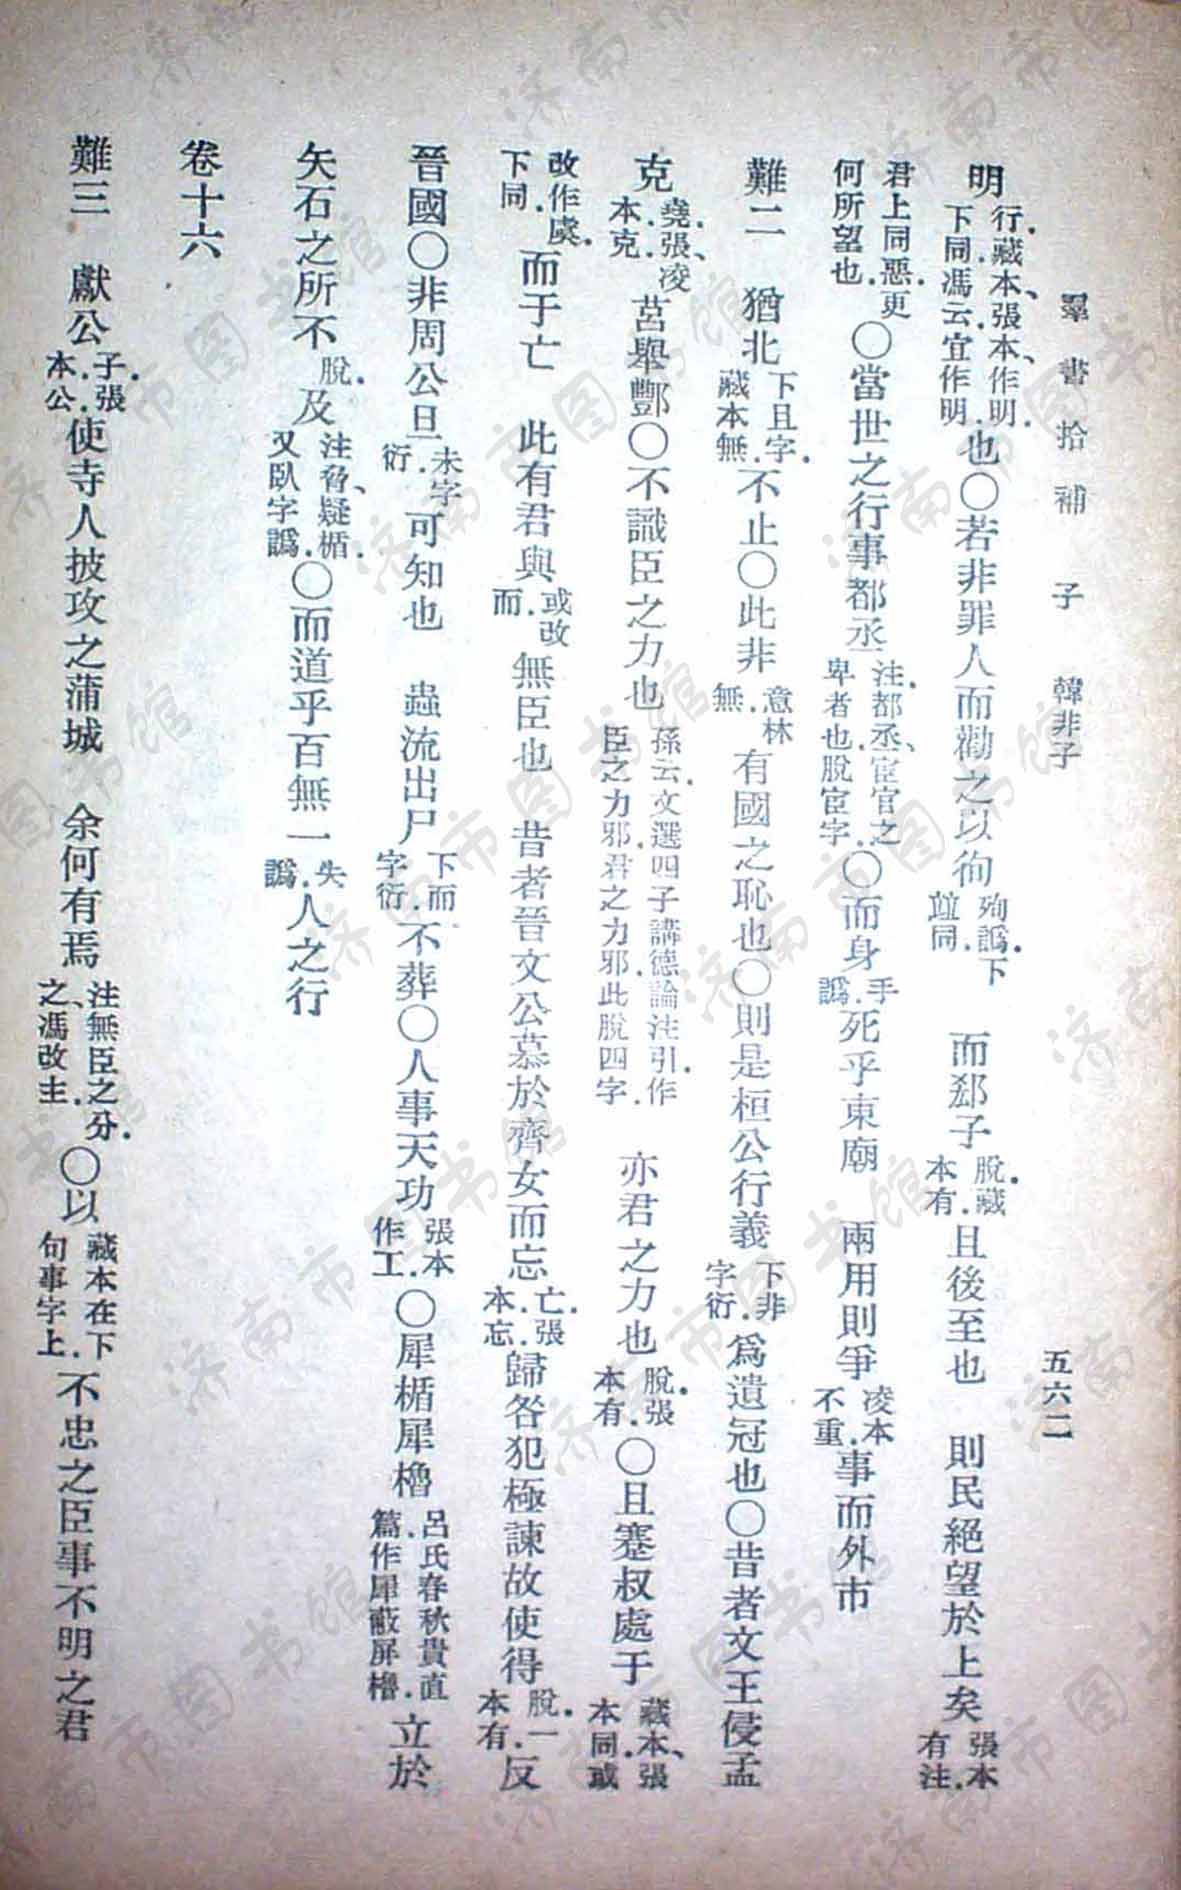 羣書拾補　子　韓非子　五六二
明行.藏本、張本、作明.下同.馮云宜作明.也〇若非罪人而勸之以徇殉譌.下竝同.　而郄子脫.藏本有.且後至也　則民絕望於上矣張本有注.
君上同惡.更何所望也.〇當世之行事都丞注.都丞、宦官之卑者也.脫宦字.〇而身手譌.死乎東廟　兩用則爭凌本不重.事而外市
難二　猶北下且字.藏本無.不止〇此非意林無.有國之恥也〇則是桓公行義下非字衍.爲遺冠也〇昔者文王侵孟
克堯.張、凌本.克.莒舉酆〇不識臣之力也孫云.文選四子講德論注引.作臣之力邪.君之力邪.此脫四字.　亦君之力也脫.張本有.〇且蹇叔處于藏本、張本同.或
改作虞.下同.而于亡　此有君與或改而.無臣也　昔者晉文公慕於齊女而忘亡.張本.忘.歸咎犯極諫故使得脫.一本有.反
晉國〇非周公旦未字衍.可知也　蟲流出尸下而字衍.不葬〇人事天功張本作工.〇犀楯犀櫓呂氏春秋貴直篇.作犀蔽屏櫓.立於
矢石之所不脫.及注脅、疑楯.又臥字譌.〇而道乎百無一失譌.人之行
卷十六
難三　獻公子.張本.公.使寺人披攻之蒲城　余何有焉注無臣之分.之、馮改主.〇以藏本在下句事字上.不忠之臣事不明之君